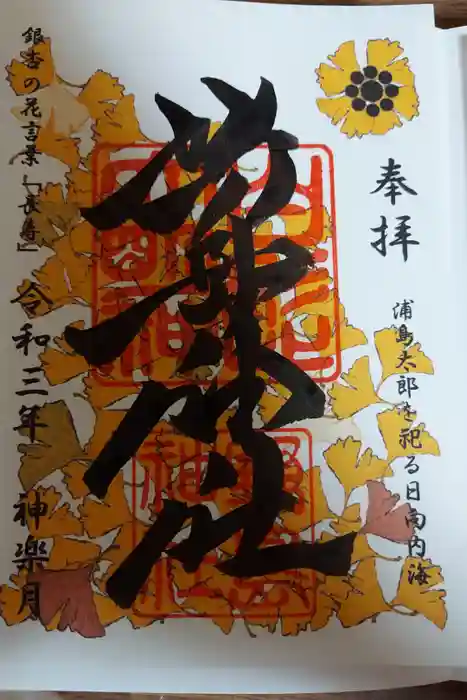 奉拝
浦島太郎を祀る日向内海
野島神社
銀杏の花言葉「長寿」
令和三年 神楽月